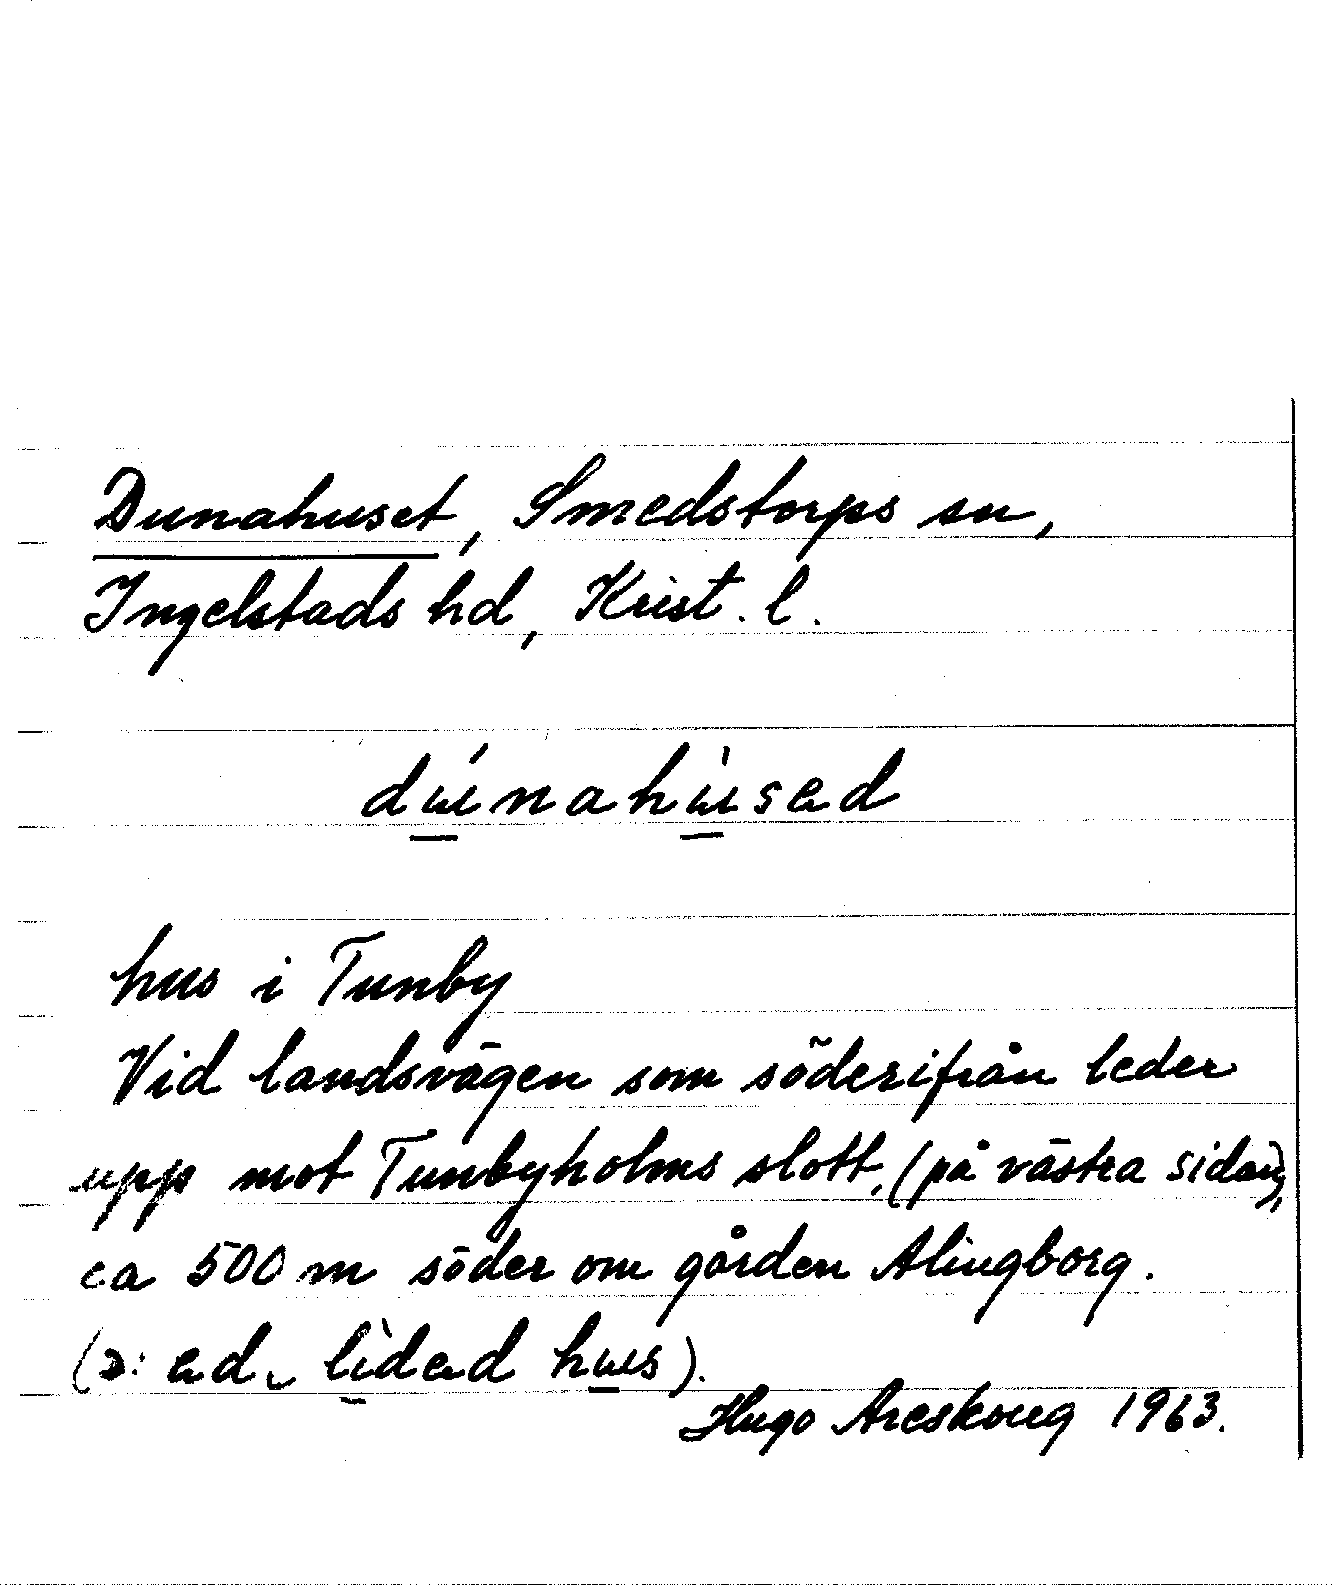 Dunahuset, Smedstorps sn,
Ingelstads hd, Krist. l.
dúnahùsad
hus i Tunby
Vid landsvägen som söderifrån leder
upp mot Tunbyholms slott, (på västra sidan),
ca 500 m söder om gården Alingborg.
(ɔ: ad lìdad hus).
Hugo Areskoug 1963.